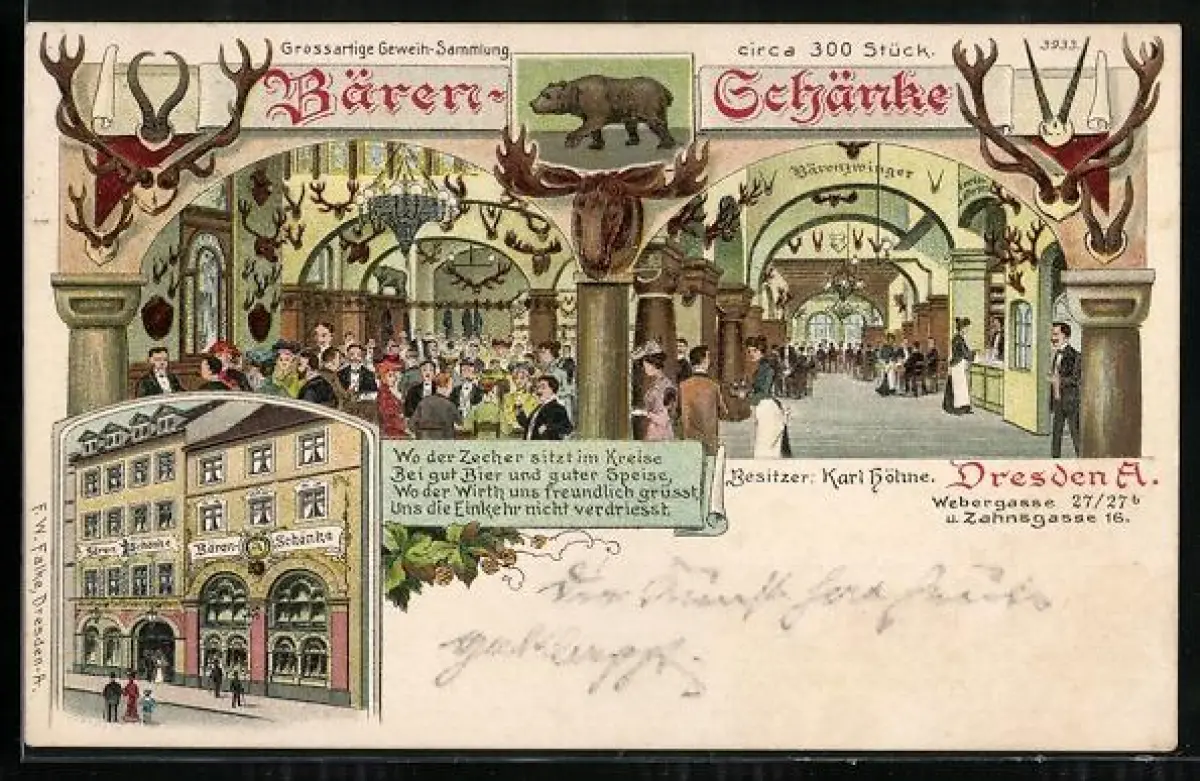 Grossartige Geweih-Sammlung
circa 300 Stück.
3933
Bären-
Schänke
Bärenzwinger
Wo der Zecher sitzt im Kreise
Bei gut Bier und guter Speise,
Wo der Wirth uns freundlich grüsst,
Uns die Einkehr nicht verdriesst.
Besitzer: Karl Höhne.
Dresden A.
Webergasse 27/27b
u. Zahnsgasse 16.
Bären Schänke
Bären- Schänke
F. W. Falke, Dresden-A.